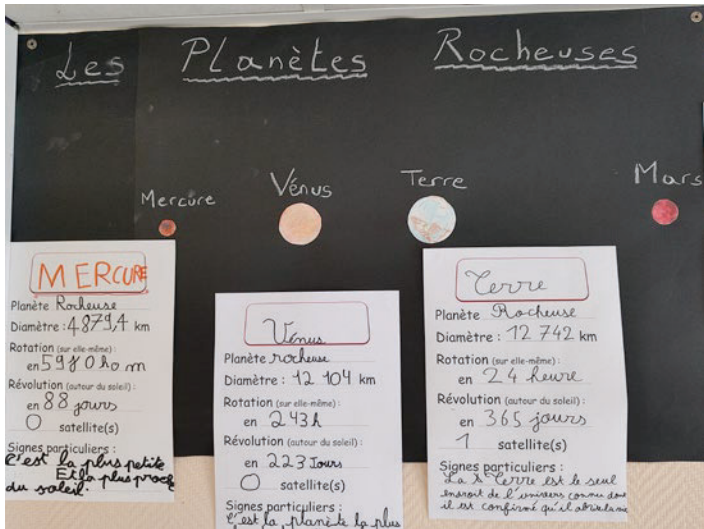 Les Planètes Rocheuses
Mercure
Vénus
Terre
Mars
MERCURE
Planète Rocheuse
Diamètre : 4879,4 km
Rotation (sur elle-même) :
en 59j0h0m
Révolution (autour du soleil) :
en 88 jours
0 satellite(s)
Signes particuliers :
C'est la plus petite
Et la plus proche
du soleil.
Vénus
Planète rocheuse
Diamètre : 12 104 km
Rotation (sur elle-même) :
en 243h
Révolution (autour du soleil) :
en 223 Jours
0 satellite(s)
Signes particuliers :
C'est la planète la plus
Terre
Planète Rocheuse
Diamètre : 12 742 km
Rotation (sur elle-même) :
en 24 heure
Révolution (autour du soleil) :
en 365 jours
1 satellite(s)
Signes particuliers :
La Terre est le seul
endroit de l'univers connu
il est confirmé qu'il